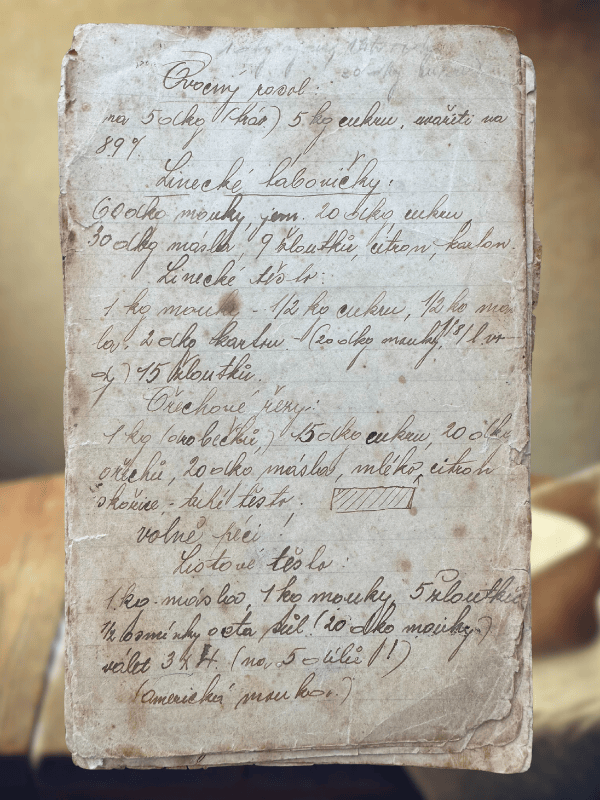 Ovocný rosol:
na 5 dkg (tráv.) 5 kg cukru, svařiti na
89%
Linecké bábovičky:
60 dko mouky, jem. 20 dkg cukru,
30 dkg másla, 9 žloutků, citron, karbon.
Linecké těsto:
1 kg mouki - 1/2 ko cukru, 1/2 ko más-
la. 2 dko karbon - (20 dko mouky 1/8 l vo-
dy) 15 žloutků.
Ořechové řezy:
1 kg (drobečků,) 15 dko cukru, 20 dkg
ořechů, 20 dko másla, mléko, citron
skořice - tuhé těsto.
volně péci!
Listové těsto:
1 ko. másla, 1 ko mouky 5 žloutků
1/2 osminky octa sůl (20 dko mouky)
válet 3 x 4. (na 5 dílů!)
(americká mouka.)